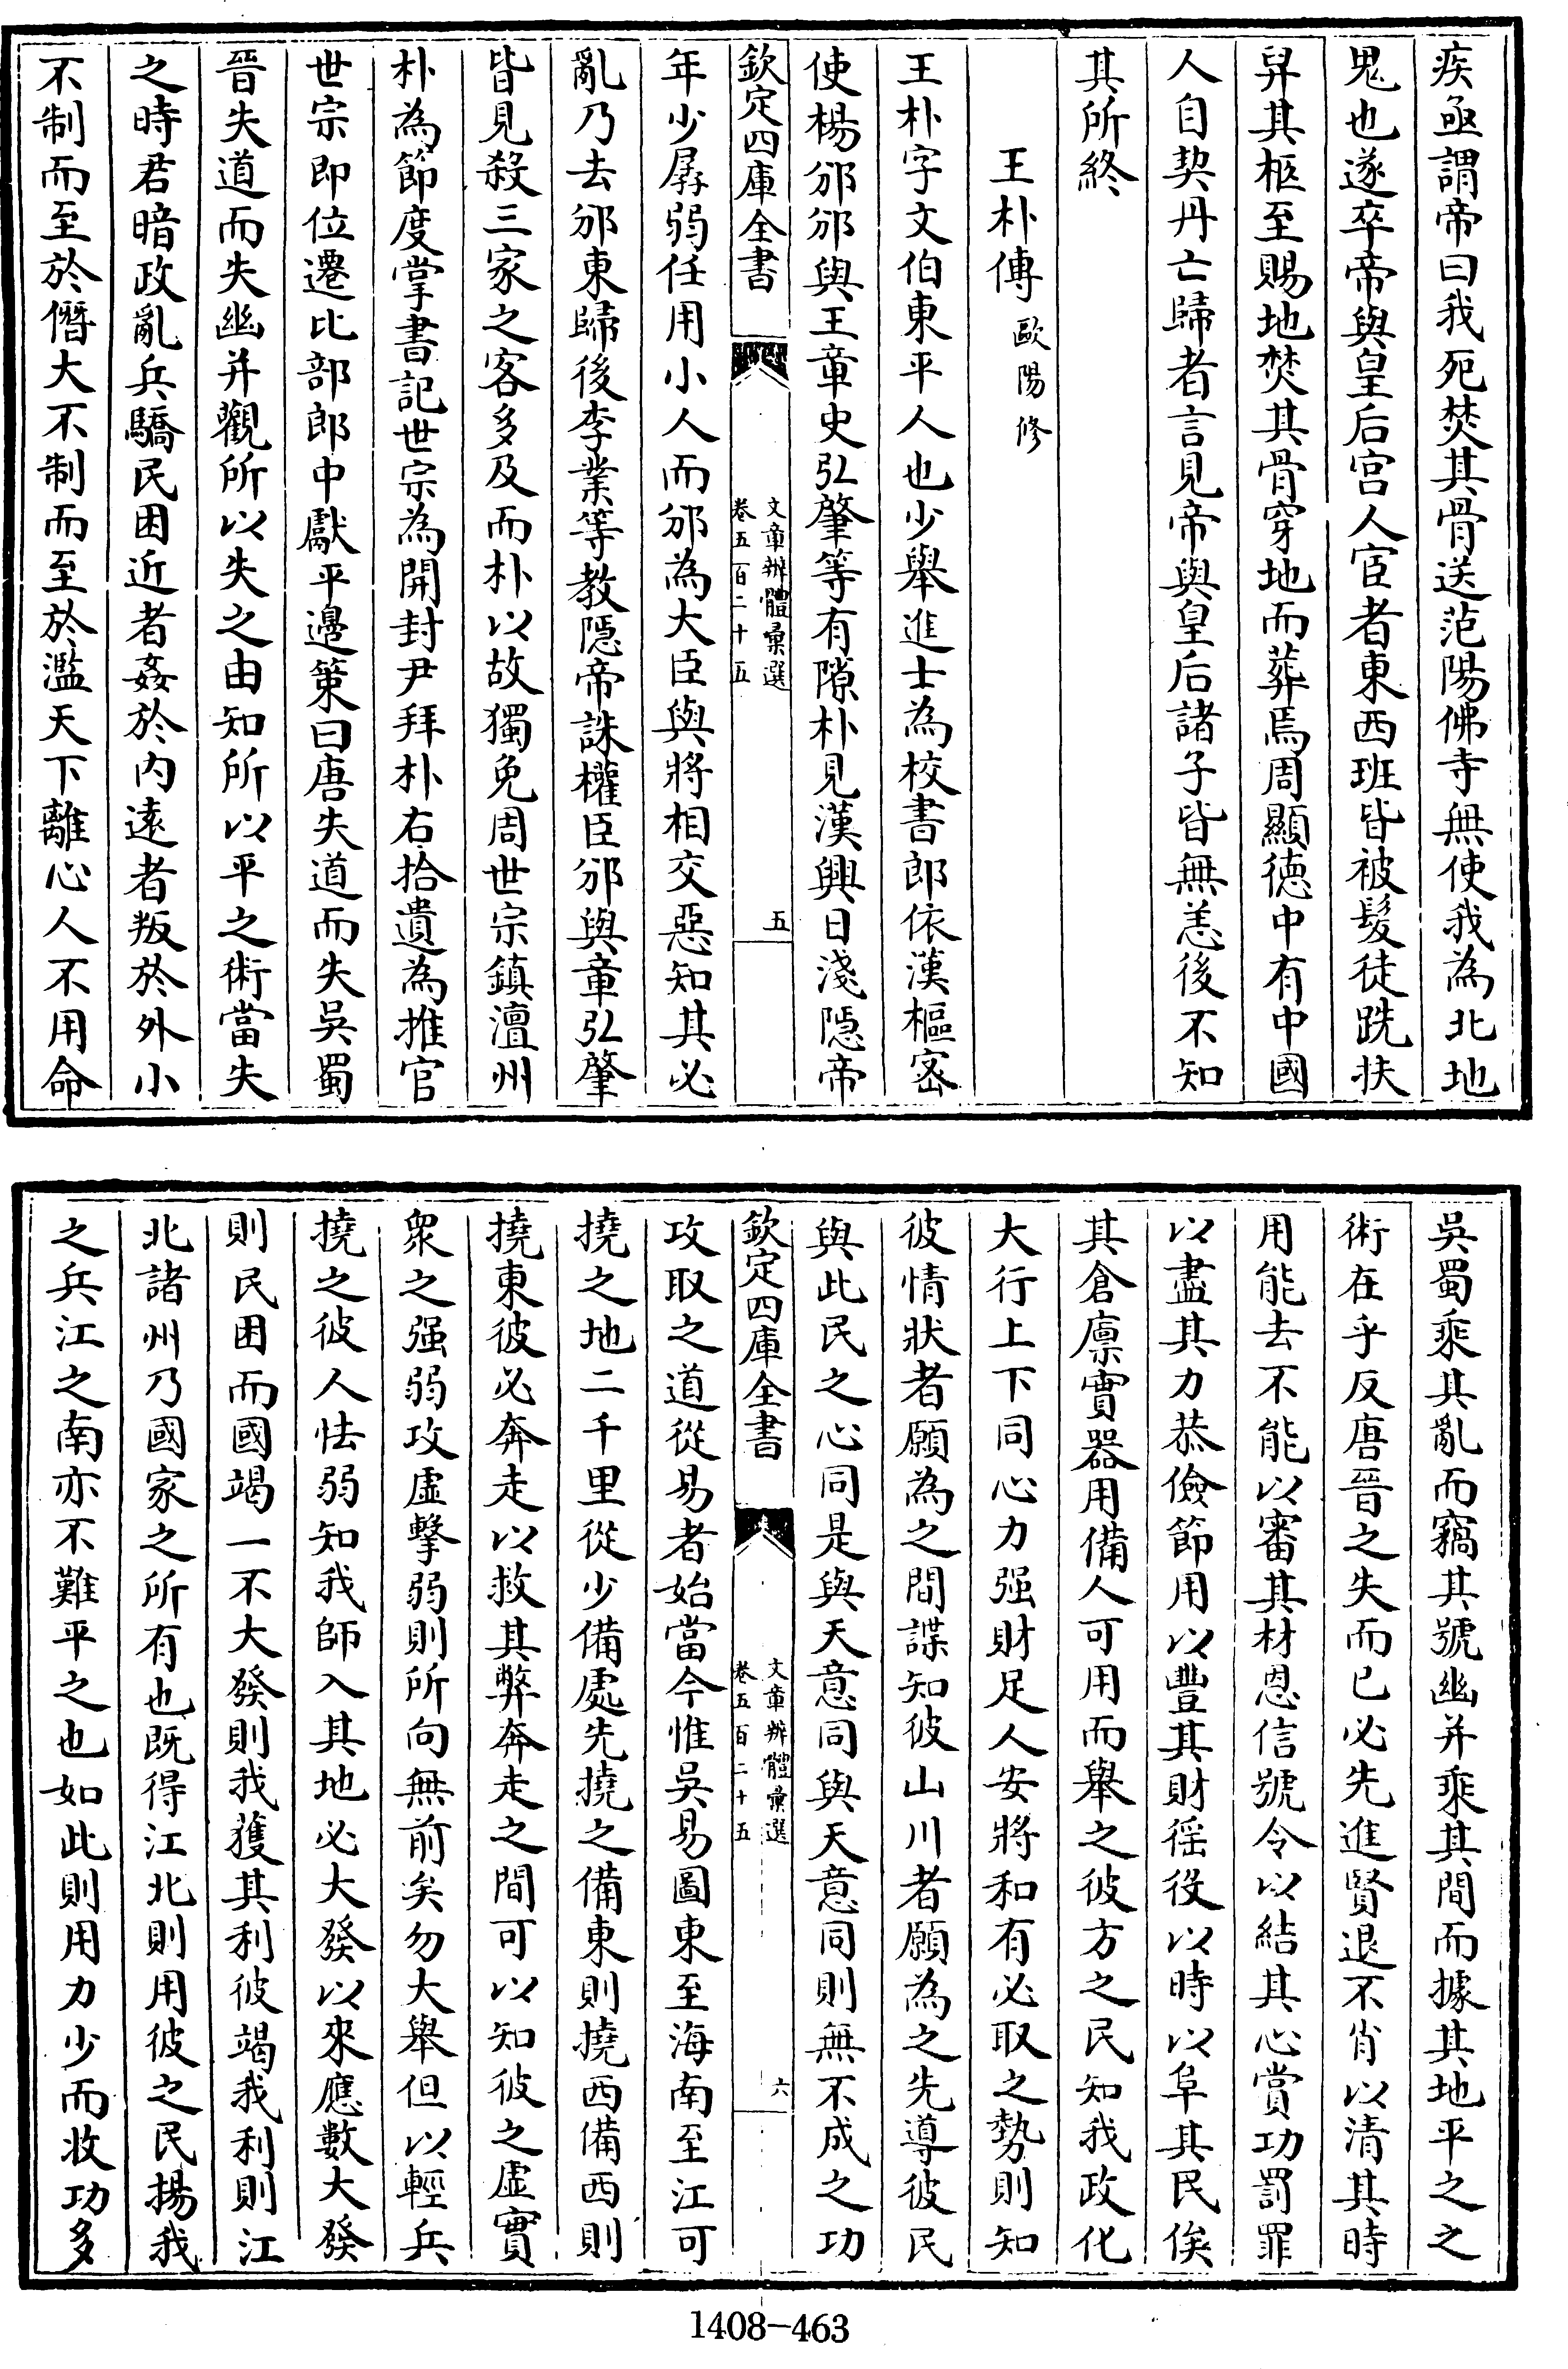 疾亟謂帝曰我死焚其骨送范陽佛寺無使我為北地
鬼也遂卒帝與皇后宫人宦者東西班皆被髮徒跣扶
舁其柩至賜地焚其骨穿地而葬焉周顯德中有中國
人自契丹亡歸者言見帝與皇后諸子皆無恙後不知
其所終
王朴傳 歐陽修
王朴字文伯東平人也少舉進士為校書郎依漢樞密
使楊邠邠與王章史弘肇等有隙朴見漢興日淺隱帝
欽定四庫全書
文章辨體彙選
卷五百二十五
五
年少孱弱任用小人而邠為大臣與將相交惡知其必
亂乃去邠東歸後李業等教隱帝誅權臣邠與章弘肇
皆見殺三家之客多及而朴以故獨免周世宗鎮澶州
朴為節度掌書記世宗為開封尹拜朴右拾遺為推官
世宗即位遷比部郎中獻平邊策曰唐失道而失吳蜀
晉失道而失幽并觀所以失之由知所以平之術當失
之時君暗政亂兵驕民困近者姦於内遠者叛於外小
不制而至於僭大不制而至於濫天下離心人不用命
吳蜀乘其亂而竊其號幽并乘其間而據其地平之之
術在乎反唐晉之失而已必先進賢退不肖以清其時
用能去不能以審其材恩信號令以結其心賞功罰罪
以盡其力恭儉節用以豐其財徭役以時以阜其民俟
其倉廪實器用備人可用而舉之彼方之民知我政化
大行上下同心力强財足人安將和有必取之勢則知
彼情狀者願為之間諜知彼山川者願為之先導彼民
與此民之心同是與天意同與天意同則無不成之功
欽定四庫全書
文章辨體彙選
卷五百二十五
六
攻取之道從易者始當今惟吳易圖東至海南至江可
撓之地二千里從少備處先撓之備東則撓西備西則
撓東彼必奔走以救其弊奔走之間可以知彼之虛實
衆之强弱攻虛擊弱則所向無前矣勿大舉但以輕兵
撓之彼人怯弱知我師入其地必大發以來應數大發
則民困而國竭一不大發則我獲其利彼竭我利則江
北諸州乃國家之所有也既得江北則用彼之民揚我
之兵江之南亦不難平之也如此則用力少而收功多
1408-463